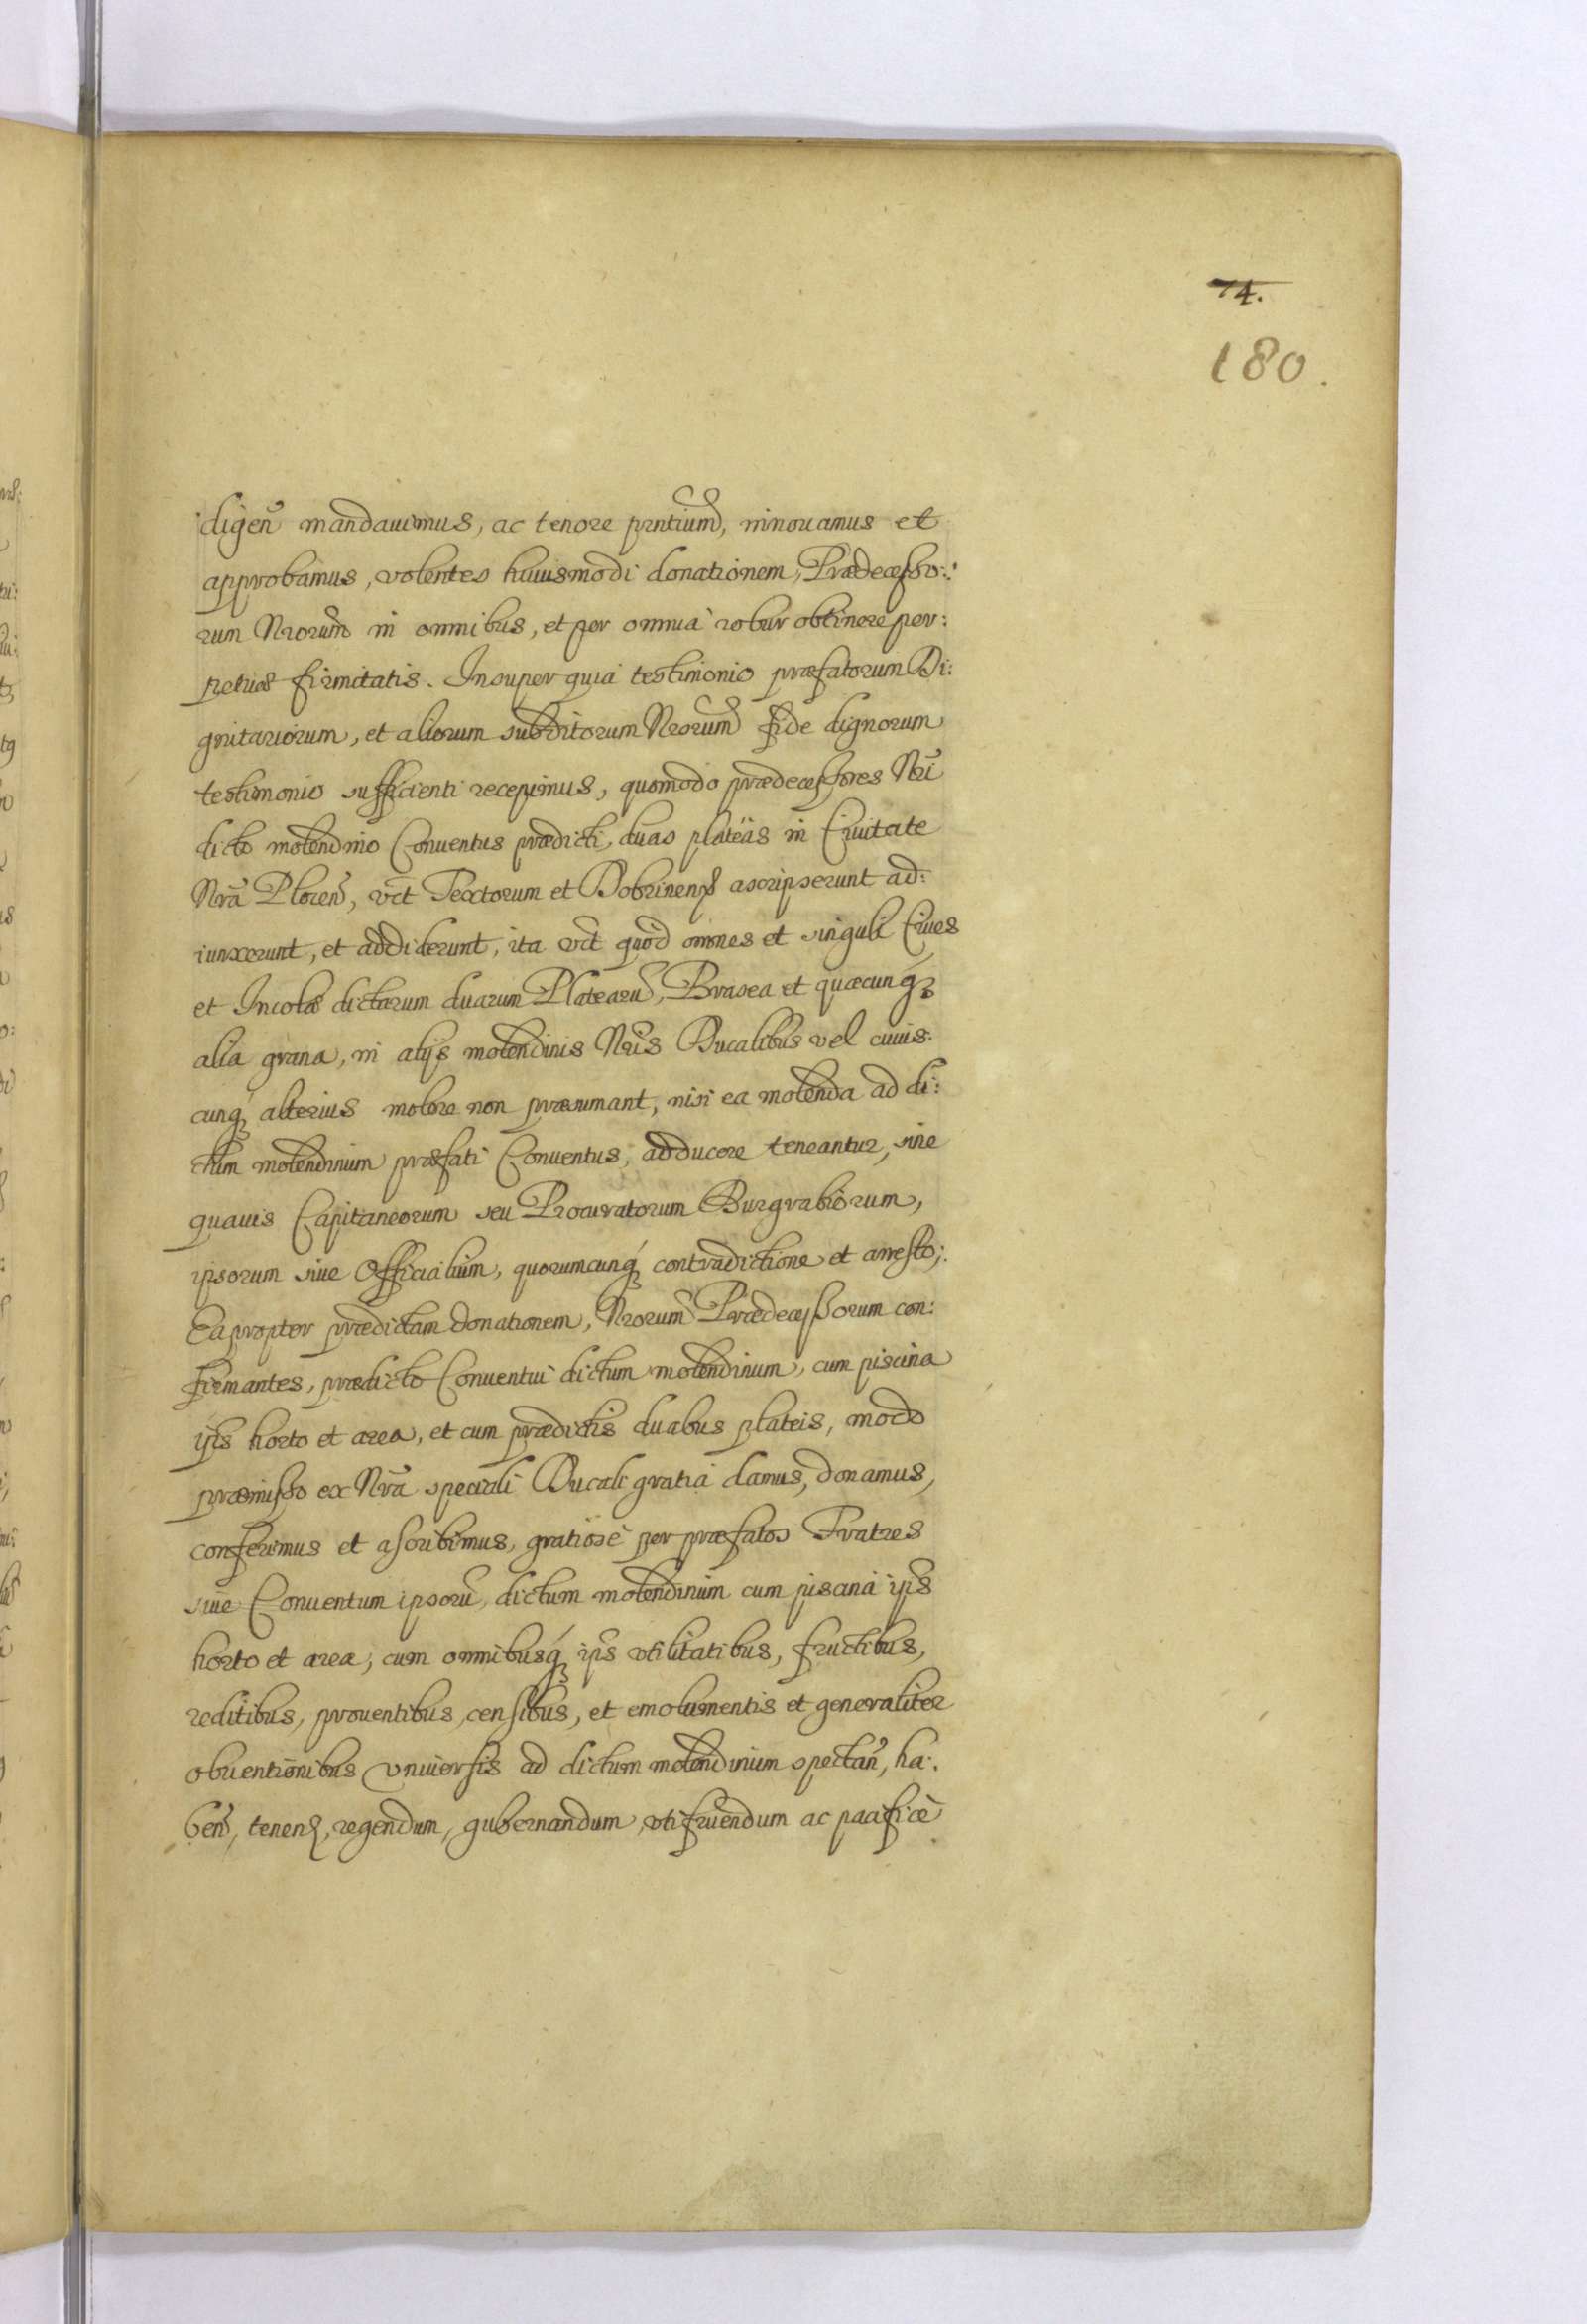 74.
180.
digen̄ mandauimus, ac tenore pr̄ntium̄, innouamus et
approbamus, volentes huiusmodi donationem, Prædecesso:
rum Nr̄orum̄ in omnibus, et per omnià robur obtinere per:
petuæ firmitatis. Insuper quia testimonio præfatorum Di:
gnitariorum, et aliorum subditorum Nr̄orum̄ fide dignorum
testimonio sufficienti recepimus, quomodo prædecessores Nr̄i
dicto molendino Conuentus prædicti, duas plateas in Ciuitate
Nr̄a Plocen̄, vc̄t Textorum et Dobrinen̄ ascripserunt ad:
iunxerunt, et addiderunt, ita vc̄t quòd omnes et singuli Ciues
et Incolæ dictarum duarum Platearū, Brasea et quæcunqꝫ
alia grana, in alijs molendinis Nr̄is Ducalibus vel cuius:
cunqꝫ alterius molere non præsumant, nisi ea molenda ad di:
ctum molendinum præfati Conuentus, adducere teneantur, sine
quauis Capitaneorum seu Procuratorum Burgrabiorum,
ipsorum siue Officialium, quorumcunqꝫ contradictione et arresto;
Ea propter prædictam donationem, Nr̄orum̄ Prædecessorum con:
firmantes, prædicto Conuentui dictum molendinum, cum piscina
ip̄s horto et area, et cum prædictis duabus plateis, modo
præmisso ex Nr̄a speciali Ducali gratia damus, donamus,
conferimus et ascribimus, gratiosè per præfatos Fratres
siue Conuentum ipsorū, dictum molendinum cum piscina ip̄s
horto et area, cum omnibusqꝫ ip̄s vtilitatibus, fructibus,
reditibus, prouentibus, censibus, et emolumentis et generaliter
obuentionibus vniuersis ad dictum molendinum spectan̄, ha:
ben̄, tenen̄, regendum, gubernandum, vtifruendum ac pacificè